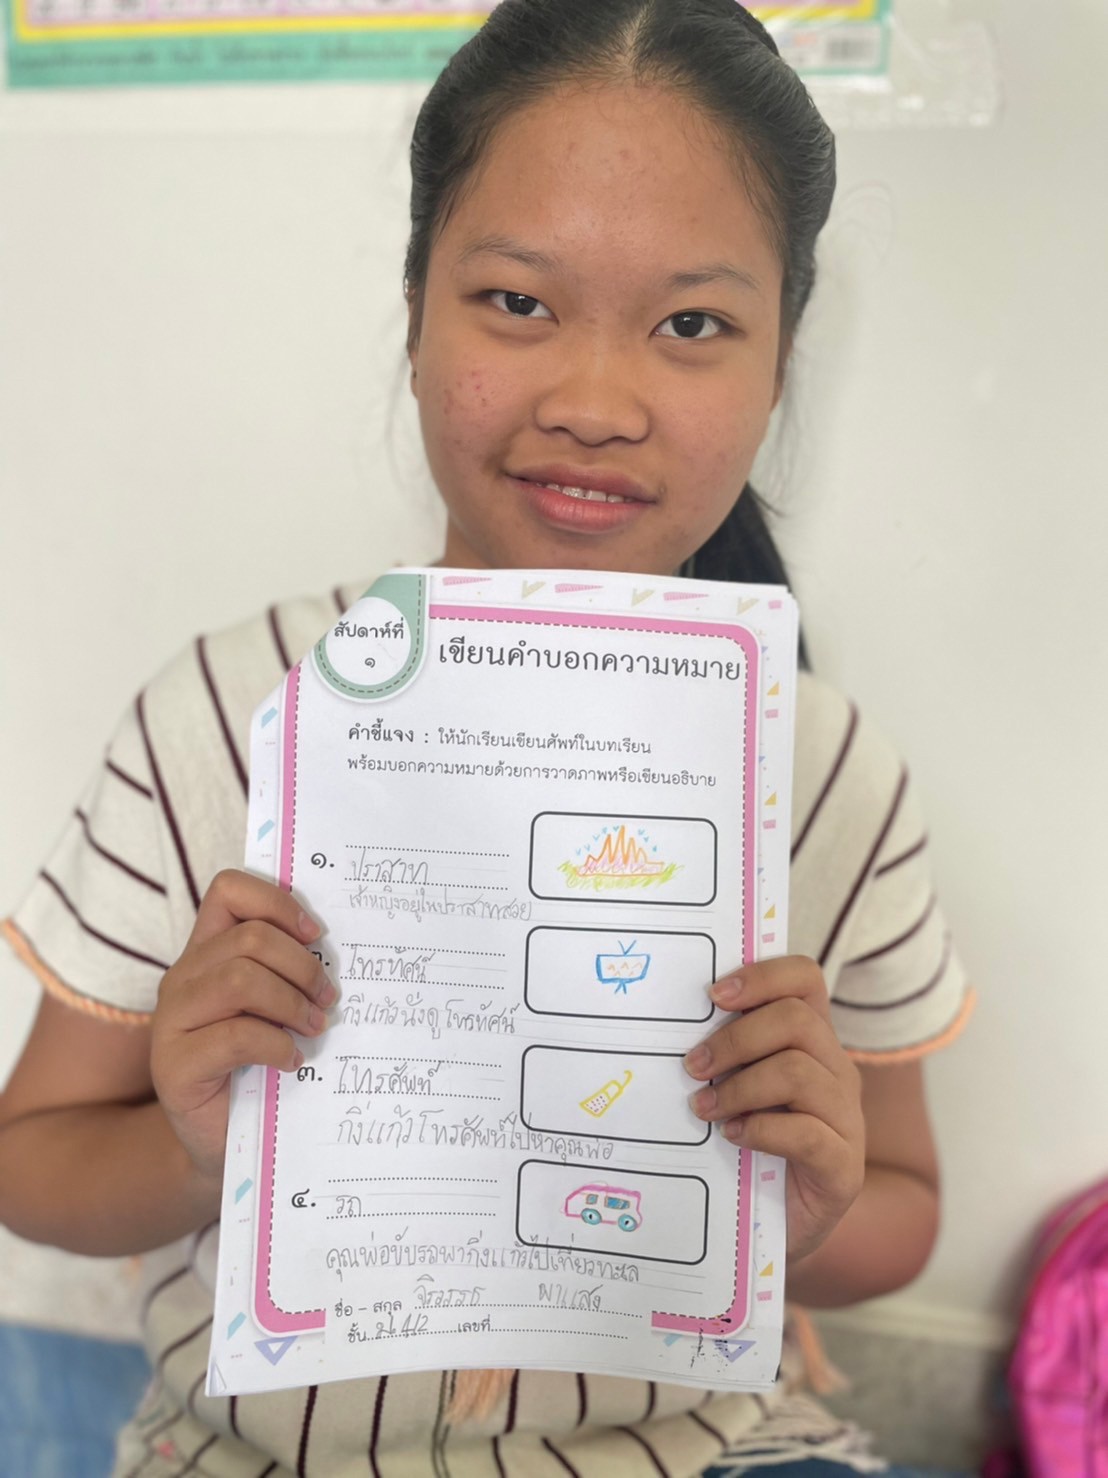 สัปดาห์ที่
๑
เขียนคำบอกความหมาย
คำชี้แจง : ให้นักเรียนเขียนศัพท์ในบทเรียน
พร้อมบอกความหมายด้วยการวาดภาพหรือเขียนอธิบาย
๑. ปราสาท
เจ้าหญิงอยู่ในปราสาทสวย
โทรทัศน์
กิ่งแก้วนั่งดูโทรทัศน์
๓. โทรศัพท์
กิ่งแก้วโทรศัพท์ไปหาคุณพ่อ
๔. รถ
คุณพ่อขับรถพากิ่งแก้วไปเที่ยวทะเล
ชื่อ - สกุล
ชั้น เลขที่